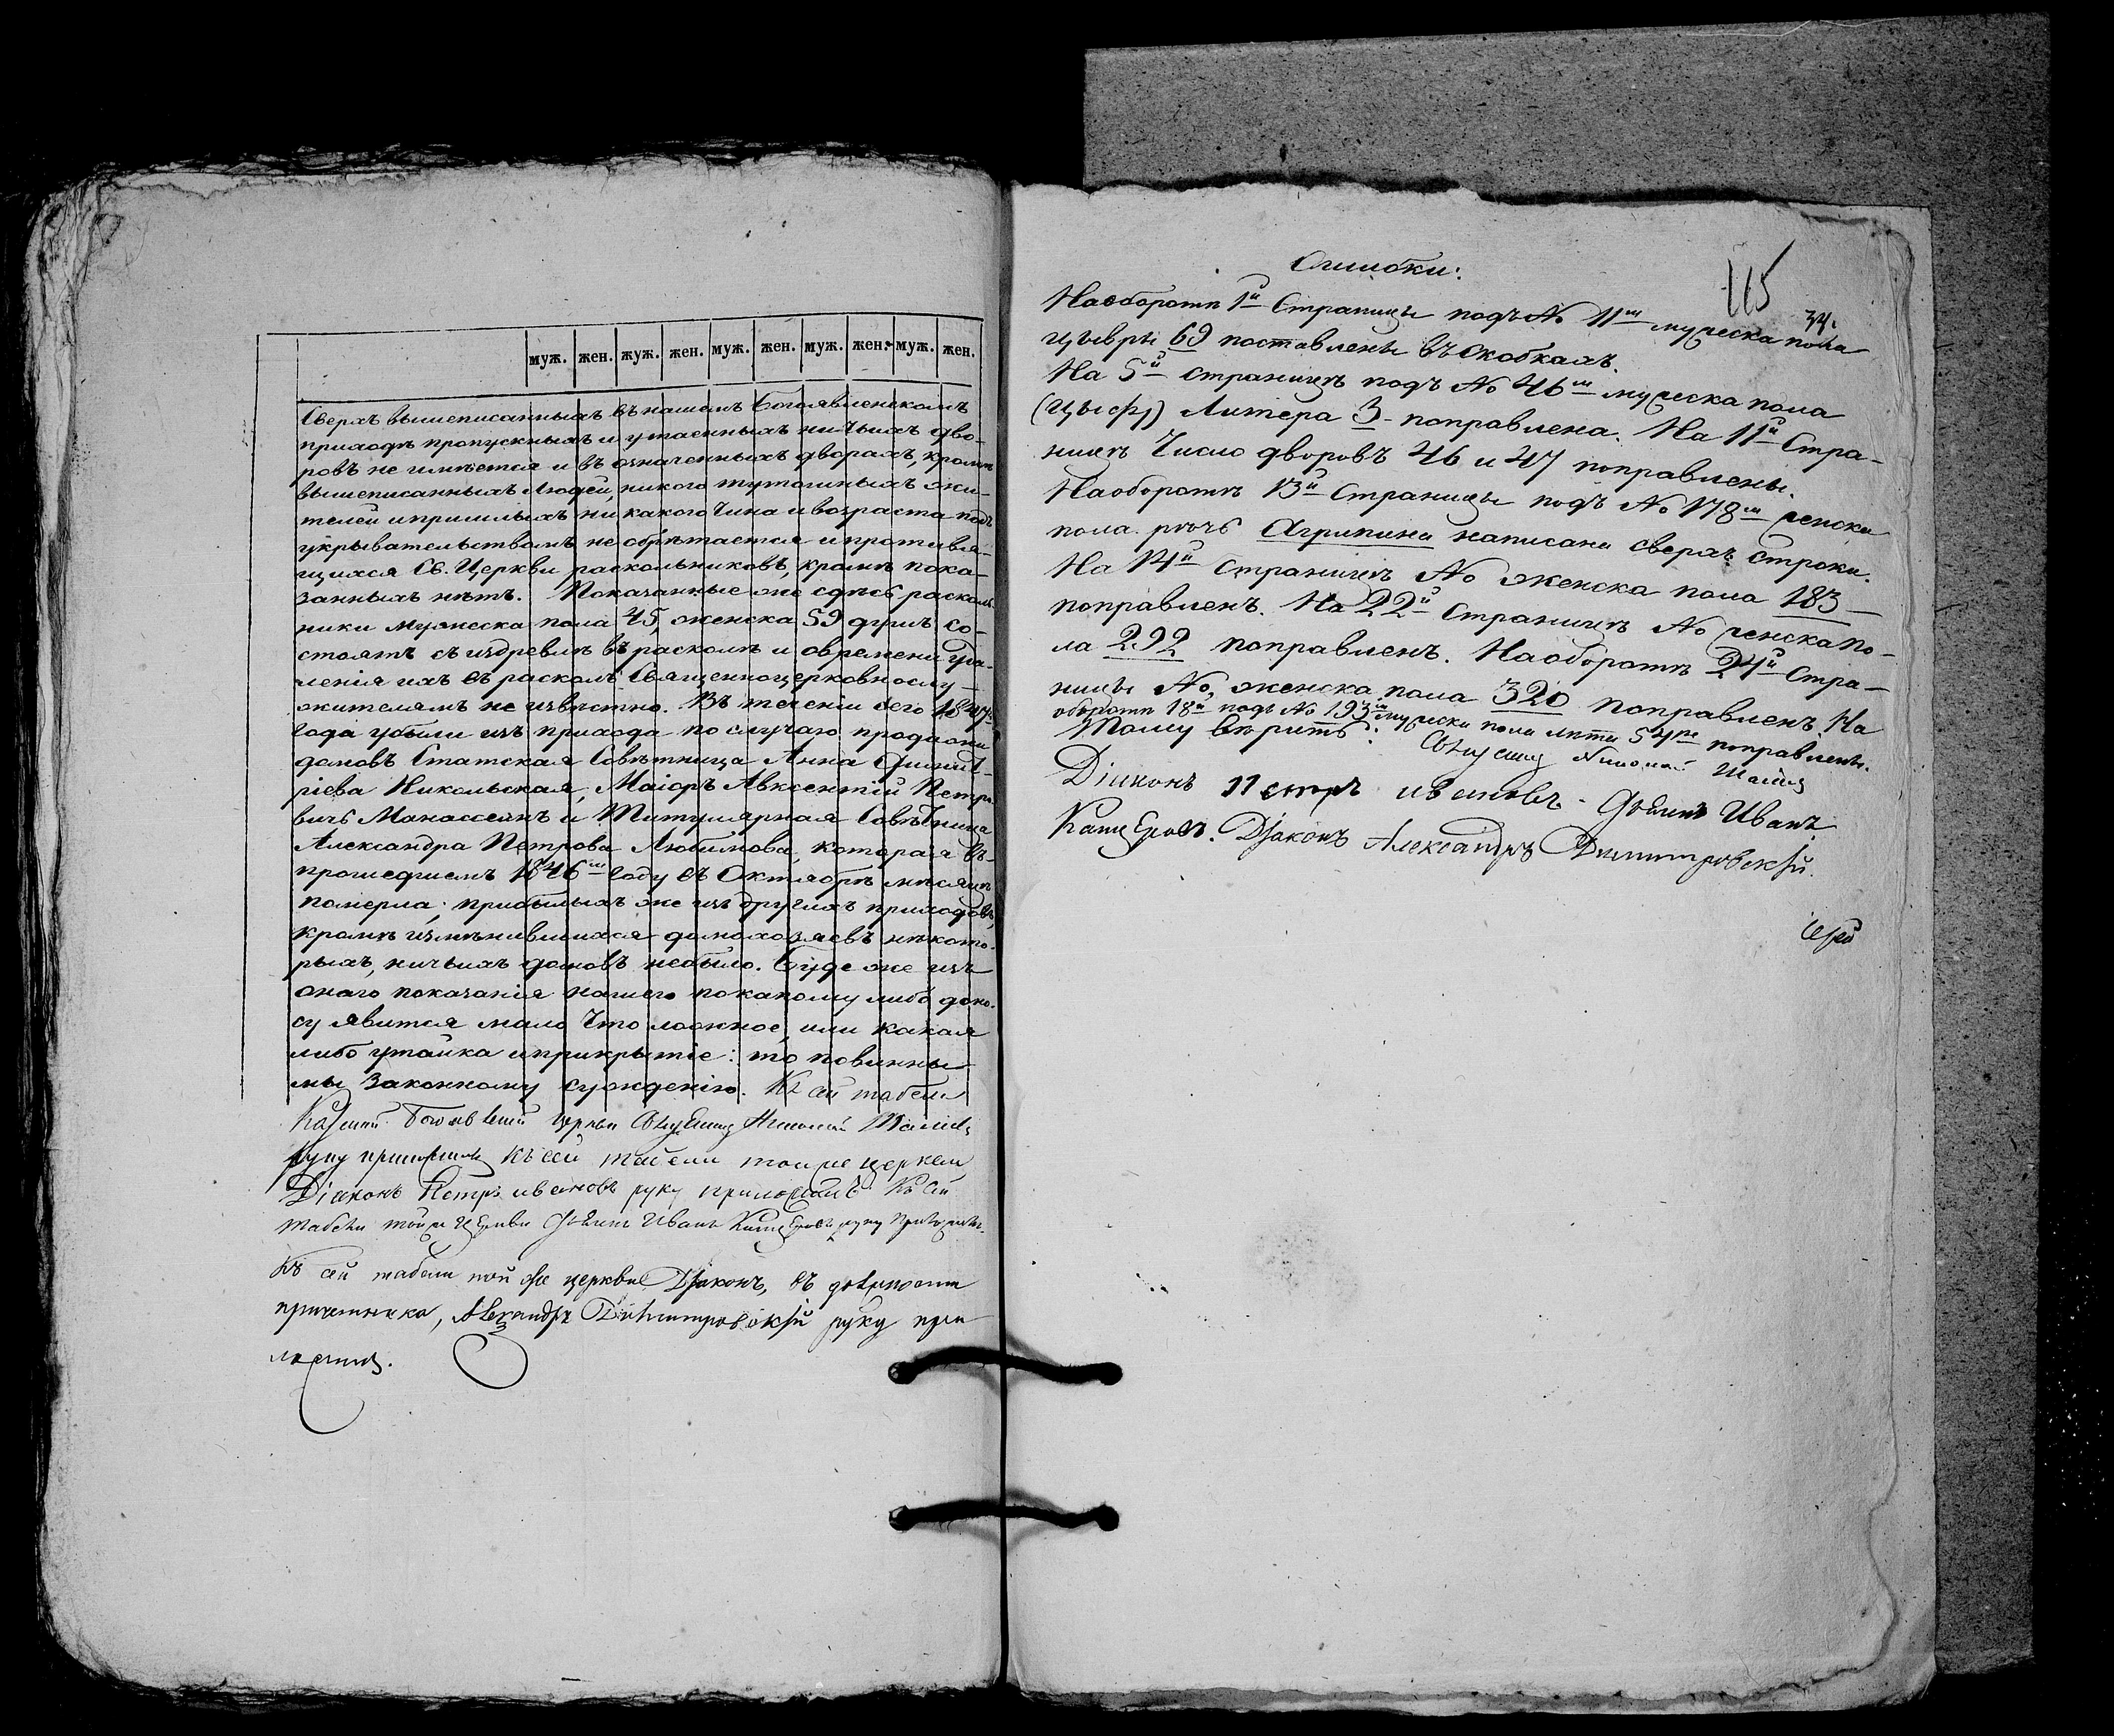 муж. жен. жуж. жен. муж. жен. муж. жен. муж. жен.
Сверхъ вышеписанныхъ въ нашемъ Богоявленскомъ
приходѣ пропускныхъ и утаенныхъ ничьихъ дво-
ровъ не имѣется и въ означенныхъ дворахъ, кромѣ
вышеписанныхъ людей, никого тутошныхъ жи-
телей и пришлыхъ никакого чина и возраста подъ
укрывательствомъ не обрѣтается и противя-
щихся Св. Церкви раскольниковъ, кромѣ пока-
занныхъ нѣтъ. Показанные же здѣсь расколь-
ники мужеска пола 45, женска 59 душъ со-
стоятъ съ издревлѣ въ расколѣ и о времени укло-
ненія ихъ въ расколъ Священноцерковнослу-
жителямъ не извѣстно. Въ теченіи сего 1847
года убыли изъ прихода по случаю продажи
домовъ Статская Совѣтница Анна Димит-
ріева Никольская, Маіоръ Авксентій Петро-
вичь Манассеинъ и Титулярная Совѣтница
Александра Петрова Любимова, которая въ
прошедшемъ 1846 году въ Октябрѣ мѣсяцѣ
померла; прибылыхъ же изъ другихъ приходовъ,
кромѣ измѣнившихся домохозяевъ нѣкото-
рыхъ, ничьихъ домовъ небыло. Буде же изъ
онаго показанія нашего по какому либо доно-
су явится мало что ложное, или какая
либо утайка и прикрытіе: то повинны
мы законному сужденію. Къ сей табели
церкви Николай
руку приложилъ Къ сей табели тоя же церкви
Діаконъ Петръ Ивановъ руку приложилъ Къ сей
табели той же церкви Дьячекъ Иванъ руку приложилъ.
Къ сей табели той же церкви Діаконъ, въ должности
причетника, Александръ Димитровскій руку при
ложилъ.
115
Ошибки:
34.
На оборотѣ 1й Страницы подъ № 11м мужеска пола
цыфры 69 поставлены въ скобкахъ.
На 5й страницѣ подъ № 46м мужеска пола
(цыфр) Литера 3 поправлена. На 11й Стра-
ницѣ Число дворовъ 46 и 47 поправлены.
На оборотѣ 13й Страницы подъ № 178м женска
пола рѣчь Агрипина написана сверхъ строки.
На 14й Страницѣ № женска пола 183
поправленъ. На 22й Страницѣ № женска по-
ла 292 поправленъ. На оборотѣ 24й Стра-
ницы № женска пола 320 поправленъ. На
оборотѣ 18й подъ № 193м мужеска пола лѣта 54ре поправлены.
Тому вѣрить. Николай
Діаконъ Петръ Ивановъ. Дьячекъ Иванъ
Діаконъ Александръ Димитровскій.